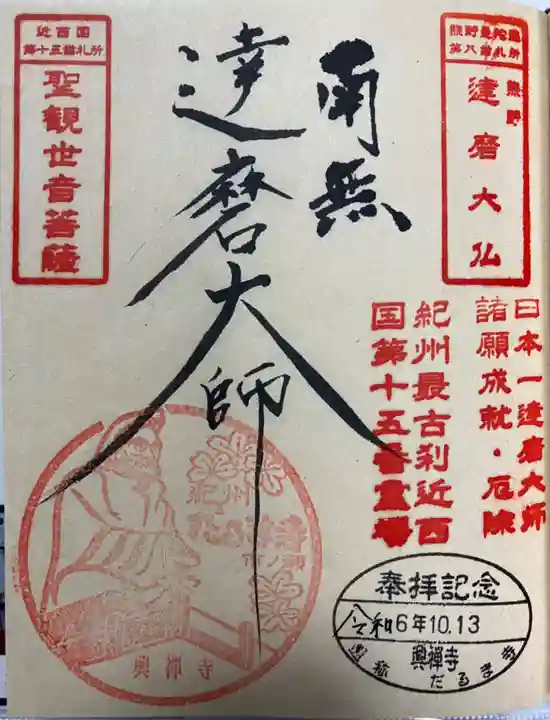 熊野曼陀羅
第八番札所
熊野
達磨大仏
日本一達磨大師
諸願成就・厄除
紀州最古刹近西
国第十五番霊場
南無
達磨大師
近西国
第十五番札所
聖観世音菩薩
紀州
興禅寺
奉拝記念
令和6年10.13
興禅寺
通称だるま寺